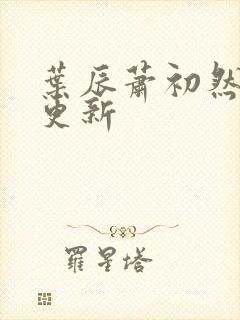 葉辰蕭初然
更新
羅星塔